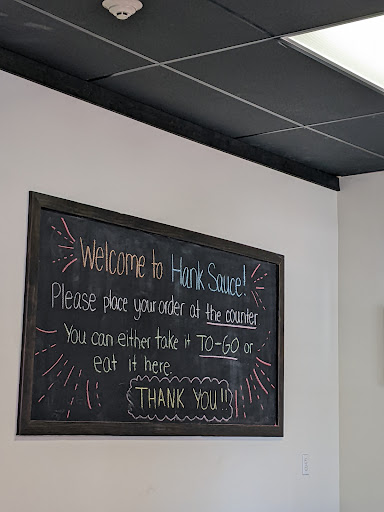 Welcome to Hank Sauce!
Please place your order at the counter
You can either take it TO-GO or
eat it here.
THANK YOU!!